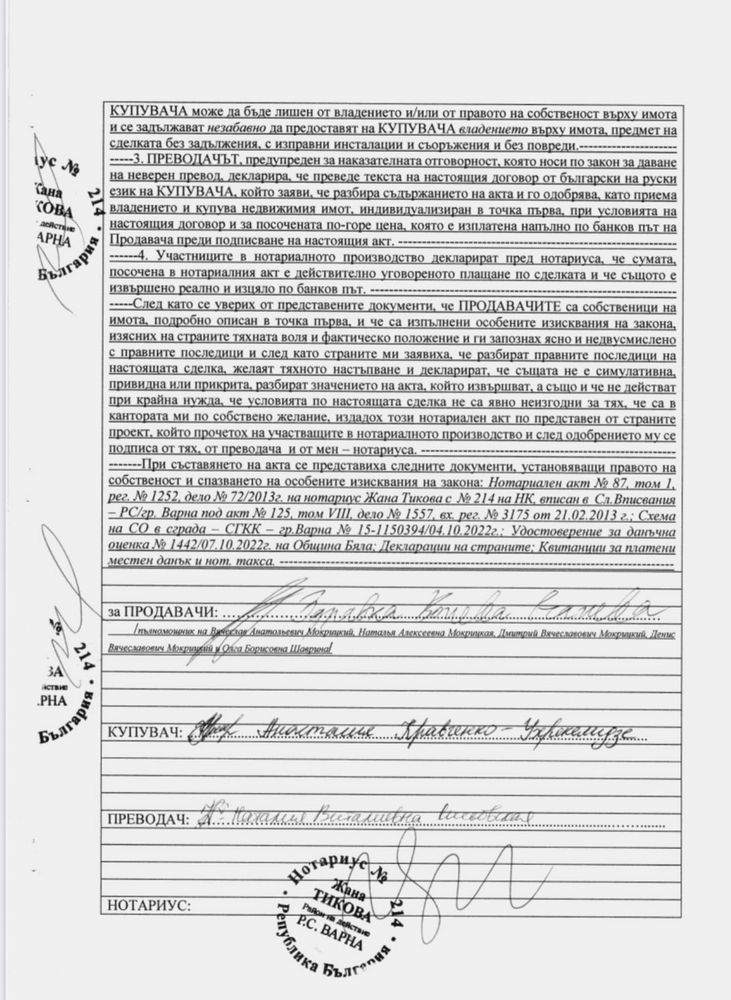 КУПУВАЧА може да бъде лишен от владението и/или от правото на собственост върху имота
и се задължават незабавно да предоставят на КУПУВАЧА владението върху имота, предмет на
сделката без задължения, с изправни инсталации и съоръжения и без повреди.-----------------------
-----3. ПРЕВОДАЧЪТ, предупреден за наказателната отговорност, която носи по закон за даване
на неверен превод, декларира, че преведе текста на настоящия договор от български на руски
език на КУПУВАЧА, който заяви, че разбира съдържанието на акта и го одобрява, като приема
владението и купува недвижимия имот, индивидуализиран в точка първа, при условията на
настоящия договор и за посочената по-горе цена, която е изплатена напълно по банков път на
Продавача преди подписване на настоящия акт. -----------------------
-----4. Участниците в нотариалното производство декларират пред нотариуса, че сумата,
посочена в нотариалния акт е действително уговореното плащане по сделката и че същото е
извършено реално и изцяло по банков път. -----------------------
-----След като се уверих от представените документи, че ПРОДАВАЧИТЕ са собственици на
имота, подробно описан в точка първа, и че са изпълнени особените изисквания на закона,
изясних на страните тяхната воля и фактическо положение и ги запознах ясно и недвусмислено
с правните последици и след като страните ми заявиха, че разбират правните последици на
настоящата сделка, желаят тяхното настъпване и декларират, че същата не е симулативна,
привидна или прикрита, разбират значението на акта, който извършват, а също и че не действат
при крайна нужда, че условията по настоящата сделка не са явно неизгодни за тях, че са в
кантората ми по собствено желание, издадох този нотариален акт по представен от страните
проект, който прочетох на участващите в нотариалното производство и след одобрението му се
подписа от тях, от преводача и от мен – нотариуса. -----------------------
-------При съставянето на акта се представиха следните документи, установяващи правото на
собственост и спазването на особените изисквания на закона: Нотариален акт № 87, том 1,
рег. № 1252, дело № 72/2013г. на нотариус Жана Тикова с № 214 на НК, вписан в Сл.Вписвания
– РС/гр. Варна под акт № 125, том VIII, дело № 1557, вх. рег. № 3175 от 21.02.2013 г.; Схема
на СО в сграда – СГКК – гр.Варна № 15-1150394/04.10.2022г.; Удостоверение за данъчна
оценка № 1442/07.10.2022г. на Община Бяла; Декларации на страните; Квитанции за платени
местен данък и нот. такса. -----------------------
за ПРОДАВАЧИ: Здравка
/пълномощник на Вячеслав Анатольевич Мокрицкий, Наталья Алексеевна Мокрицкая, Дмитрий Вячеславович Мокрицкий, Денис
Вячеславович Мокрицкий и Олга Борисовна Шаврина/
КУПУВАЧ: Анастасие Кравченко-
ПРЕВОДАЧ: Наталия Виталиевна
НОТАРИУС:
Нотариус № 214 • Република България •
Жана
ТИКОВА
Район на действие
Р.С. ВАРНА
ус № 214 • България
Жана
КОВА
действие
АРНА
№ 214 • България
ВА
йствие
РНА